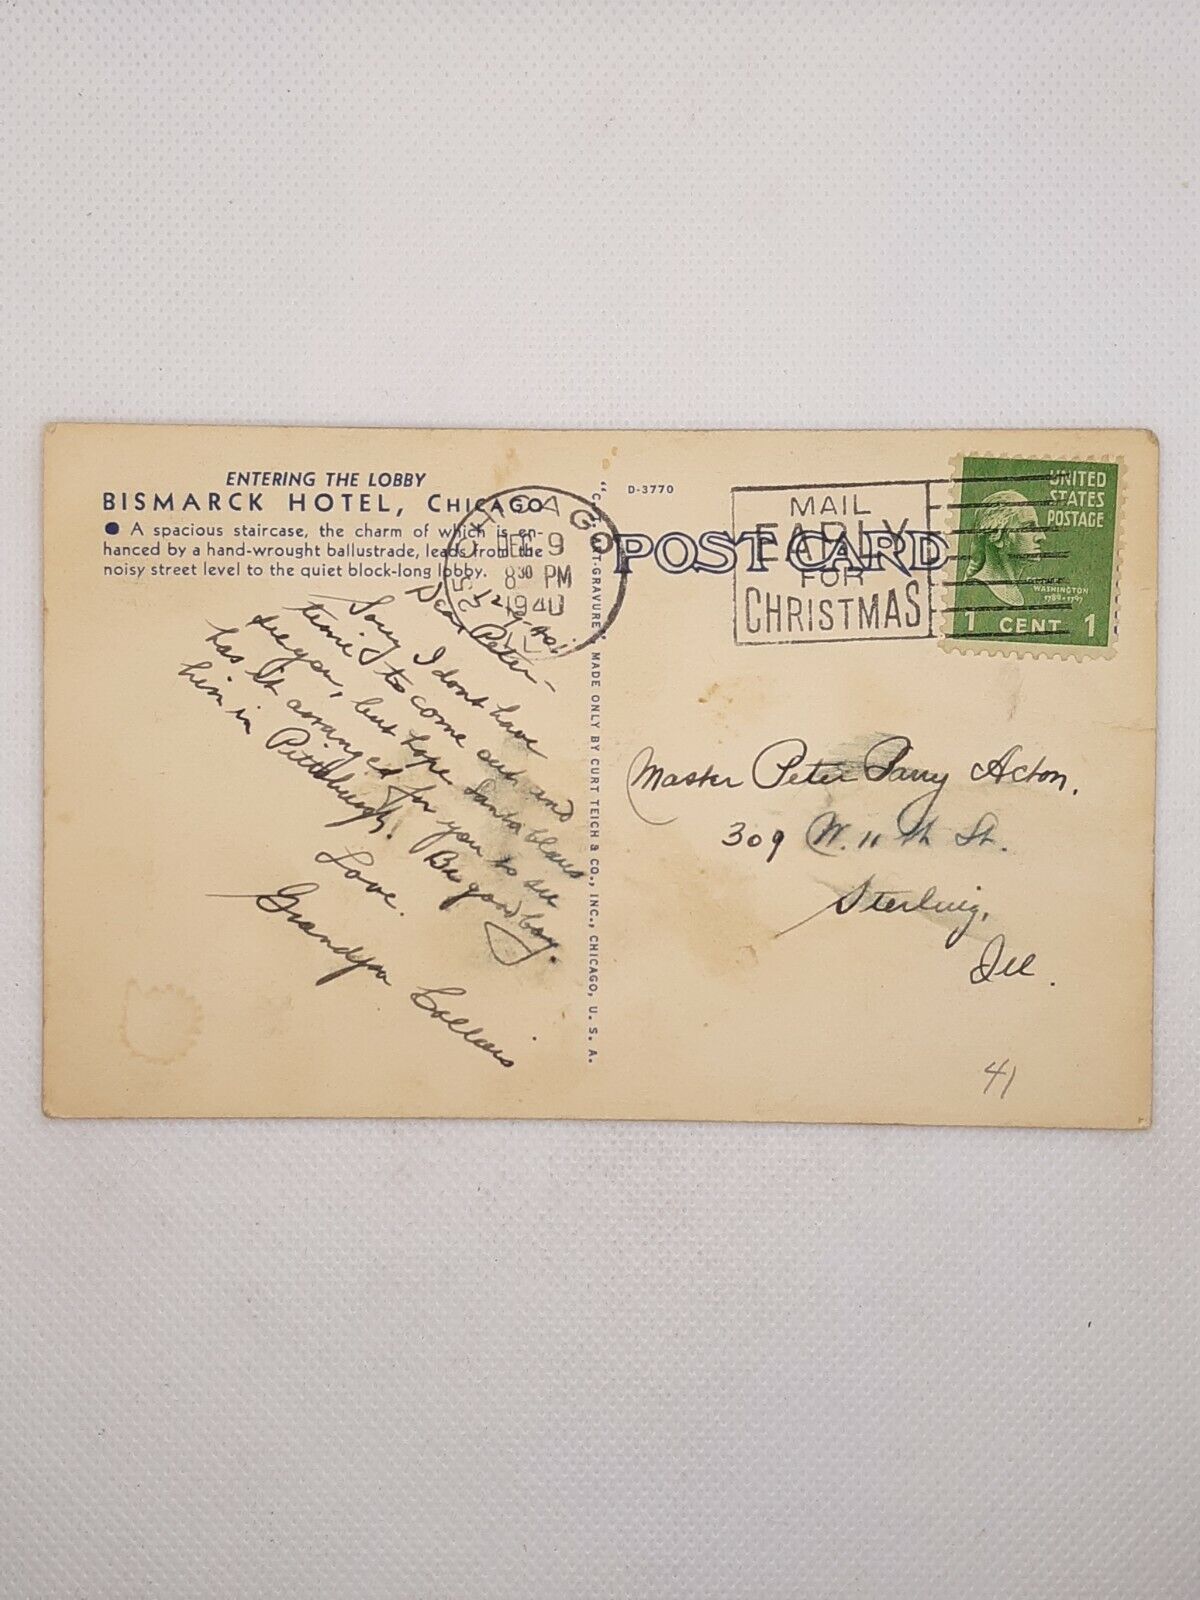 ENTERING THE LOBBY
BISMARCK HOTEL, CHICAGO
● A spacious staircase, the charm of which is en-
hanced by a hand-wrought ballustrade, leads from the
noisy street level to the quiet block-long lobby.
12/9/40.
Dear Peter—
Sorry I dont have
time to come out and
see you, but hope Santa Claus
has it arranged for you to see
him in Pittsburgh. Be good boy.
Love.
Grandpa
CHICAGO
DEC 9
8 30 PM
1940
ILL
MADE ONLY BY CURT TEICH & CO., INC., CHICAGO, U. S. A.
D-3770
POST CARD
MAIL
EARLY
FOR
CHRISTMAS
UNITED
STATES
POSTAGE
WASHINGTON
1789-1797
1 CENT 1
Master Peter Parry Acton.
309 W. 11th St.
Sterling,
Ill.
41